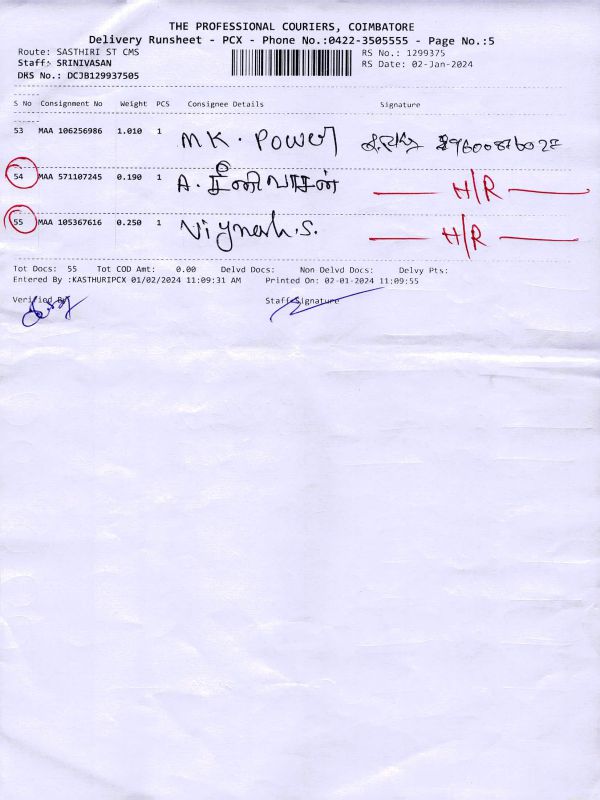 THE PROFESSIONAL COURIERS, COIMBATORE
Delivery Runsheet - PCX - Phone No.:0422-3505555 - Page No.:5
Route: SASTHIRI ST CMS RS No.: 1299375
Staff: SRINIVASAN RS Date: 02-Jan-2024
DRS No.: DCJB129937505
S No Consignment No Weight PCS Consignee Details Signature
53 MAA 106256986 1.010 1 MK. Power
54 MAA 571107245 0.190 1 A. H/R
55 MAA 105367616 0.250 1 Viynesh.S. H/R
Tot Docs: 55 Tot COD Amt: 0.00 Delvd Docs: Non Delvd Docs: Delvy Pts:
Entered By :KASTHURIPCX 01/02/2024 11:09:31 AM Printed On: 02-01-2024 11:09:55
Verified By Staff Signature